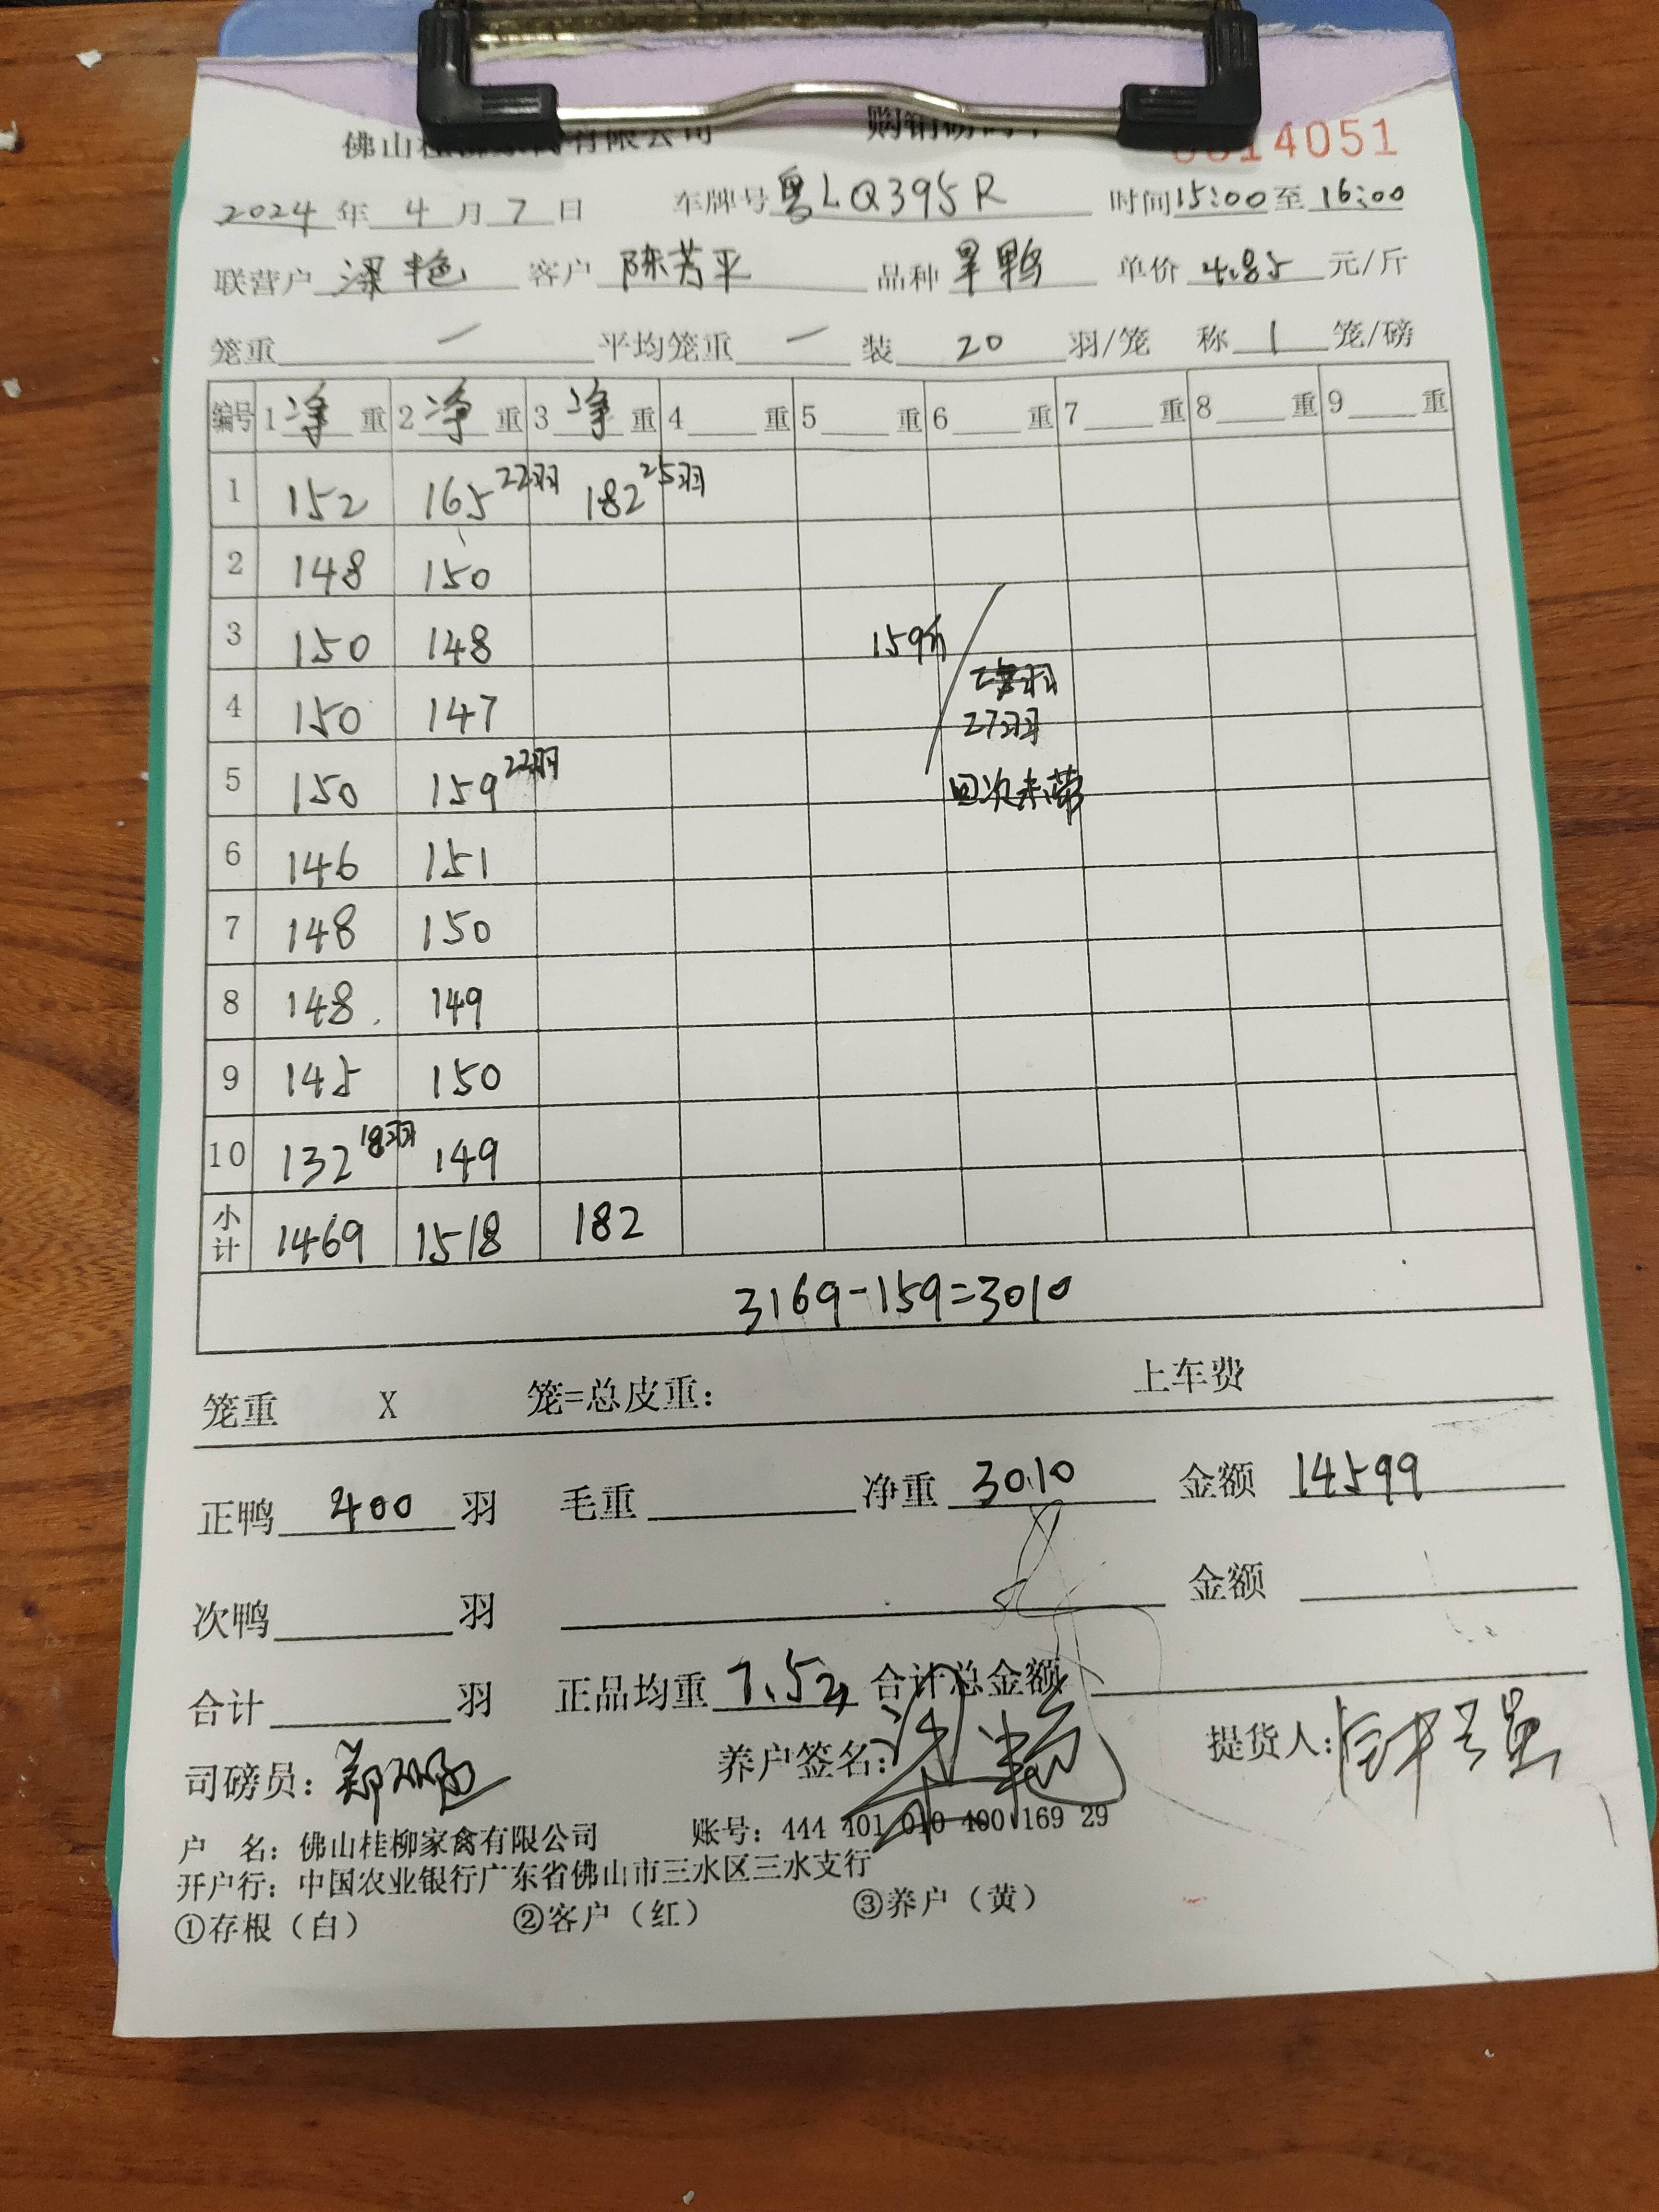 佛山桂柳家禽有限公司 购销磅码单 0014051
2024年4月7日 车牌号粤LQ395R 时间15:00至16:00
联营户 梁艳 客户 陈芳平 品种 旱鸭 单价 4.85 元/斤
笼重 一 平均笼重 一 装 20 羽/笼 称 1 笼/磅
编号 1 净 重 2 净 重 3 净 重 4 重 5 重 6 重 7 重 8 重 9 重
1 152 165 22羽 182 25羽
2 148 150
3 150 148 159斤
4 150 147 27羽
5 150 159 22羽 回次未带
6 146 151
7 148 150
8 148 149
9 145 150
10 132 18羽 149
小计 1469 1518 182
3169-159=3010
笼重 X 笼=总皮重: 上车费
正鸭 400 羽 毛重 净重 3010 金额 14599
次鸭 羽 金额
合计 羽 正品均重 7.52 合计总金额
司磅员: 养户签名: 梁艳 提货人:
户 名: 佛山桂柳家禽有限公司 账号: 444 401 010 400 169 29
开户行: 中国农业银行广东省佛山市三水区三水支行
①存根（白） ②客户（红） ③养户（黄）